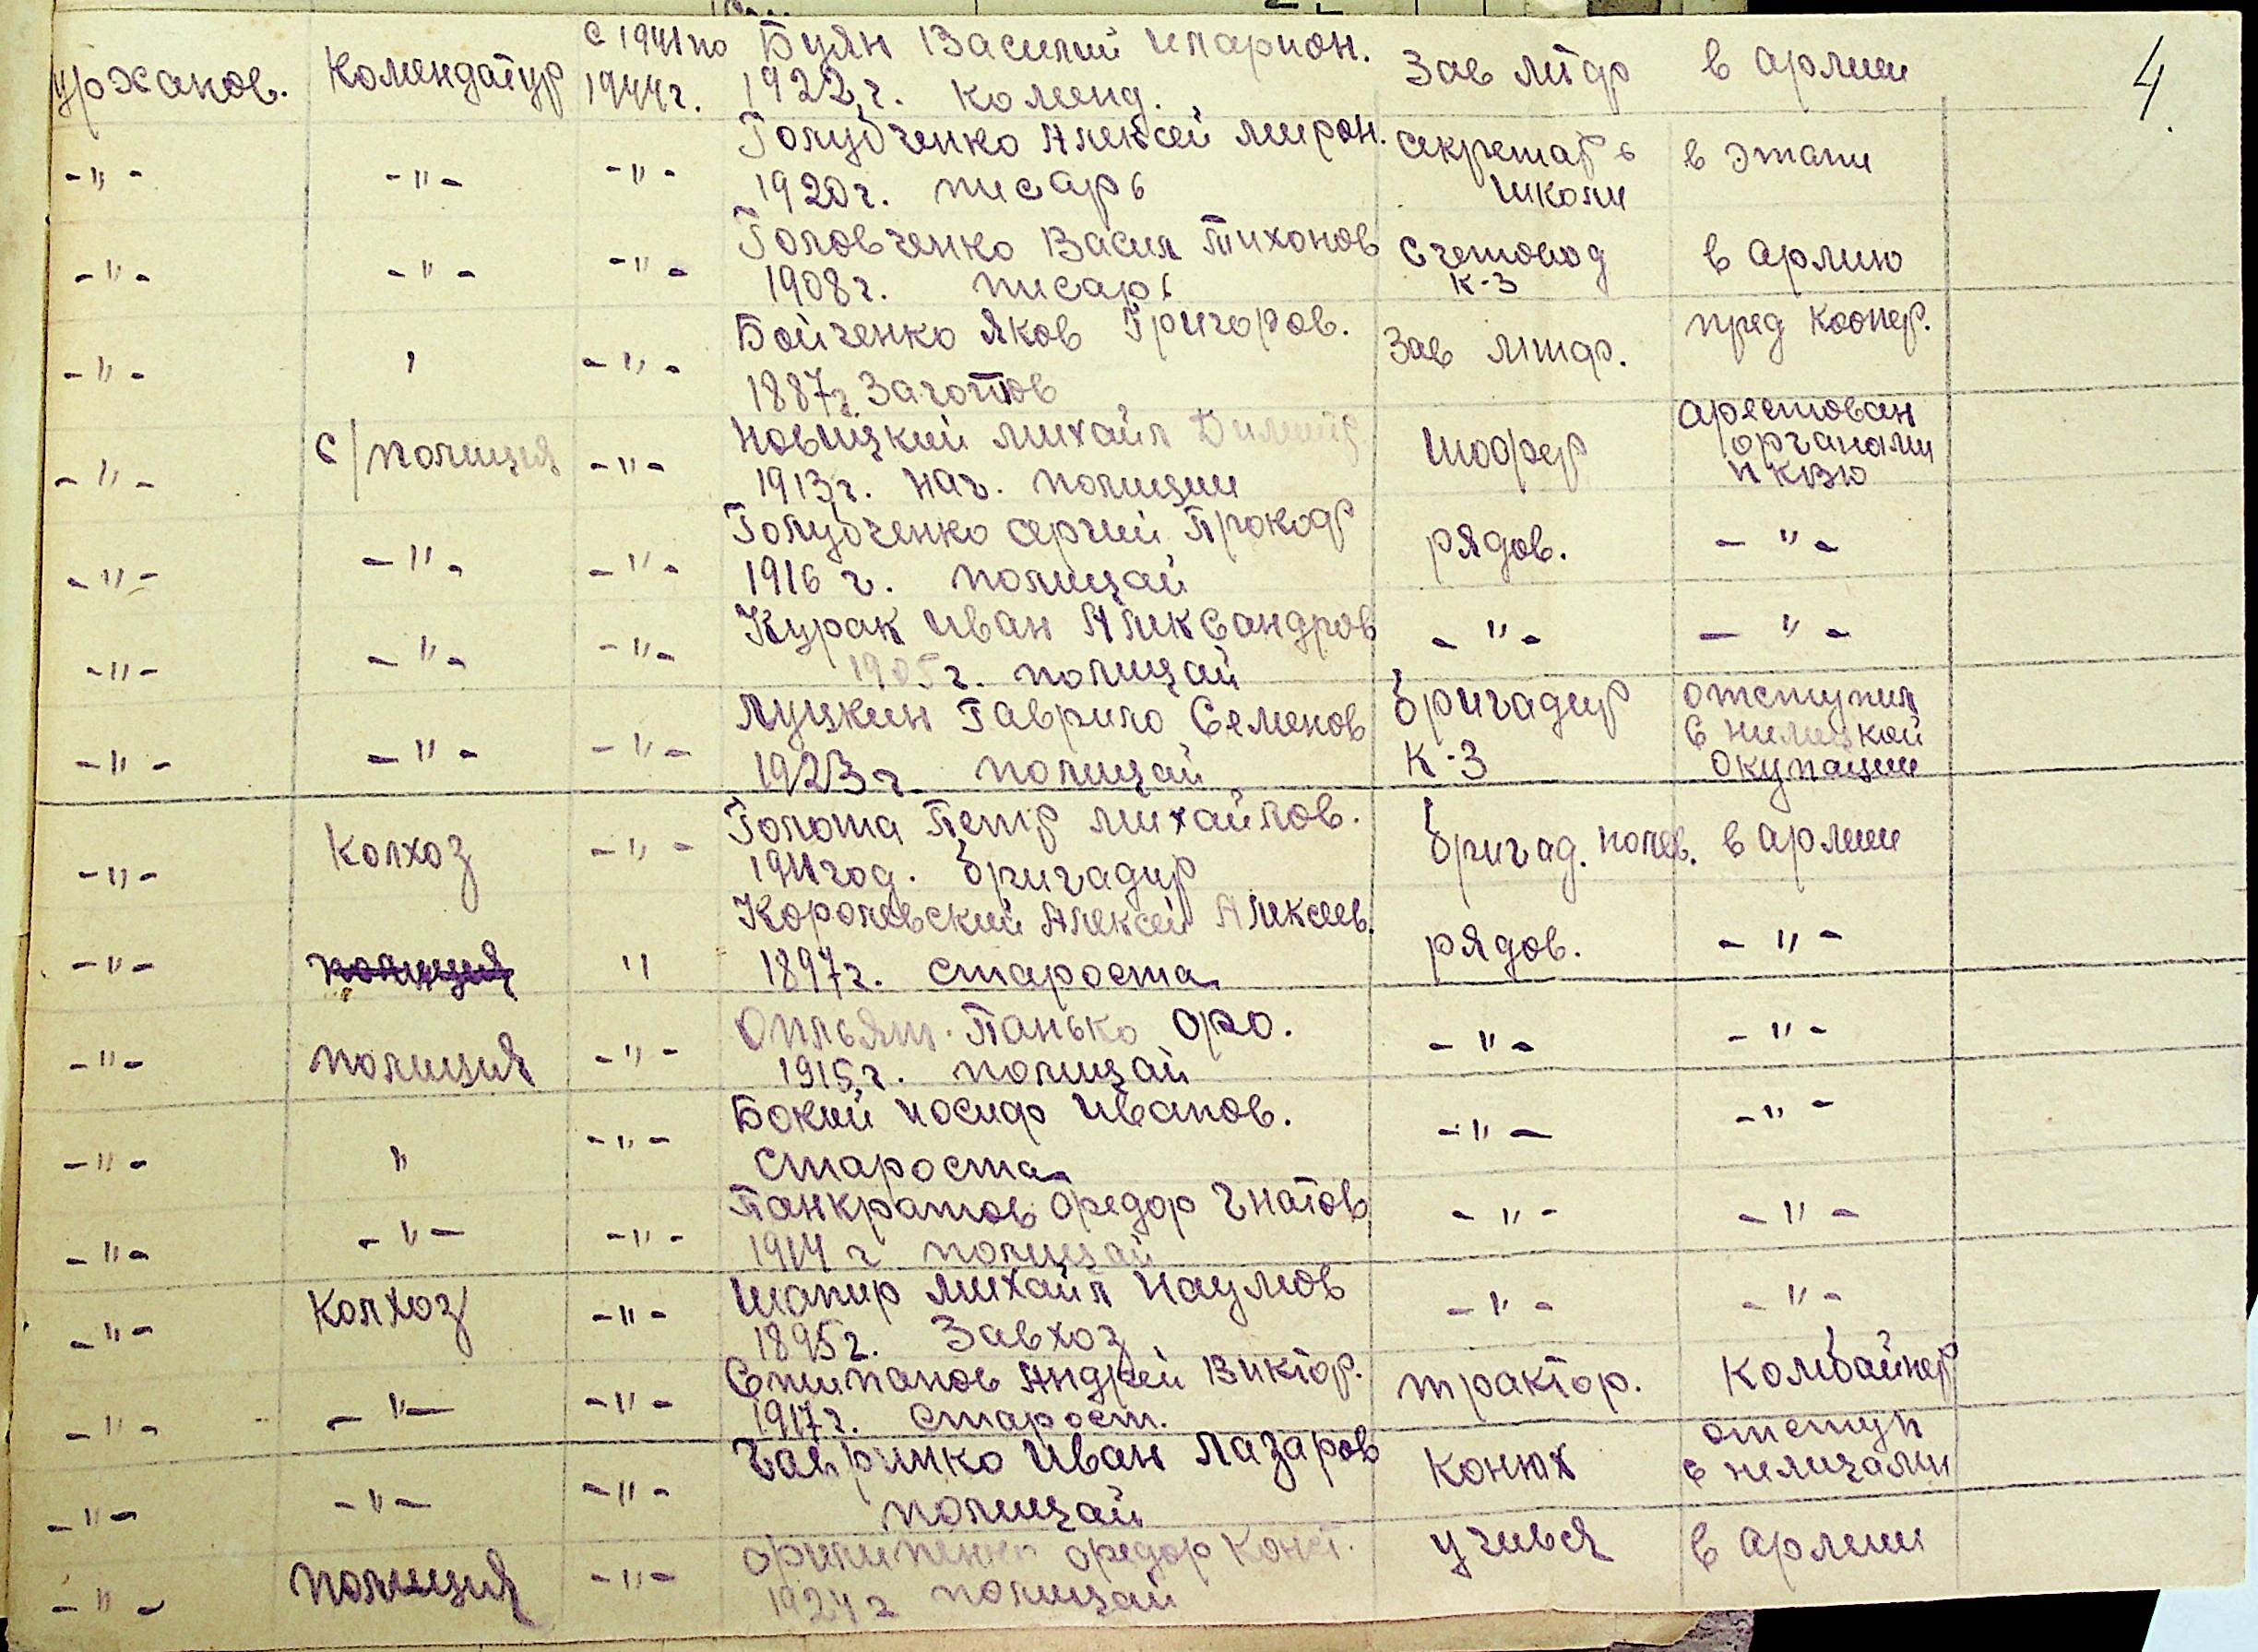 4.
уржаков. Комендатур с 1941 по Буян Василий иларион. Зав мтф в армии
1944 г. 1922 г. коменд.
-"- -"- -"- Голубченко Алексей мирон. секретарь в этапи
1920 г. писарь школи
-"- -"- -"- Головченко Васил Тихонов счетовод в армию
1908 г. писарь к-з
-"- " -"- Бойченко Яков Григоров. Зав мтф. пред коопер.
1887 г. Заготов
-"- с/полиция -"- Новицкий михайл Димит шофер арестован
1913 г. нач. полиции органами
нквю
-"- -"- -"- Голубченко сергий Прокоф рядов. -"-
1916 г. полицай
-"- -"- -"- Курак иван Александров -"- -"-
1905 г. полицай
-"- -"- -"- луцкин Гаврило Семенов бригадир отступил
1923 г. полицай к-з с нимецкой
окупации
-"- Колхоз -"- Голота Петр михайлов. бригад. полев. в армии
1911 год. бригадир
-"- полиция " Королевский Алексей Алексеев. рядов. -"-
1897 г. староста
-"- полиция -"- Панько фро. -"- -"-
1915 г. полицай
-"- " -"- Бокий иосиф иванов. -"- -"-
староста
-"- -"- -"- Панкратов федор Гнатов -"- -"-
1914 г полицай
-"- Колхоз -"- шапир михайл наумов -"- -"-
1895 г. Завхоз
-"- -"- -"- Стипанов Андрей Виктор. трактор. Комбайнер
1917 г. старост.
-"- -"- -"- Гаврилко иван лазаров конюх отступ
полицай с немицами
-"- полиция -"- филипенко федор Конст. учився в армии
1924 г полицай